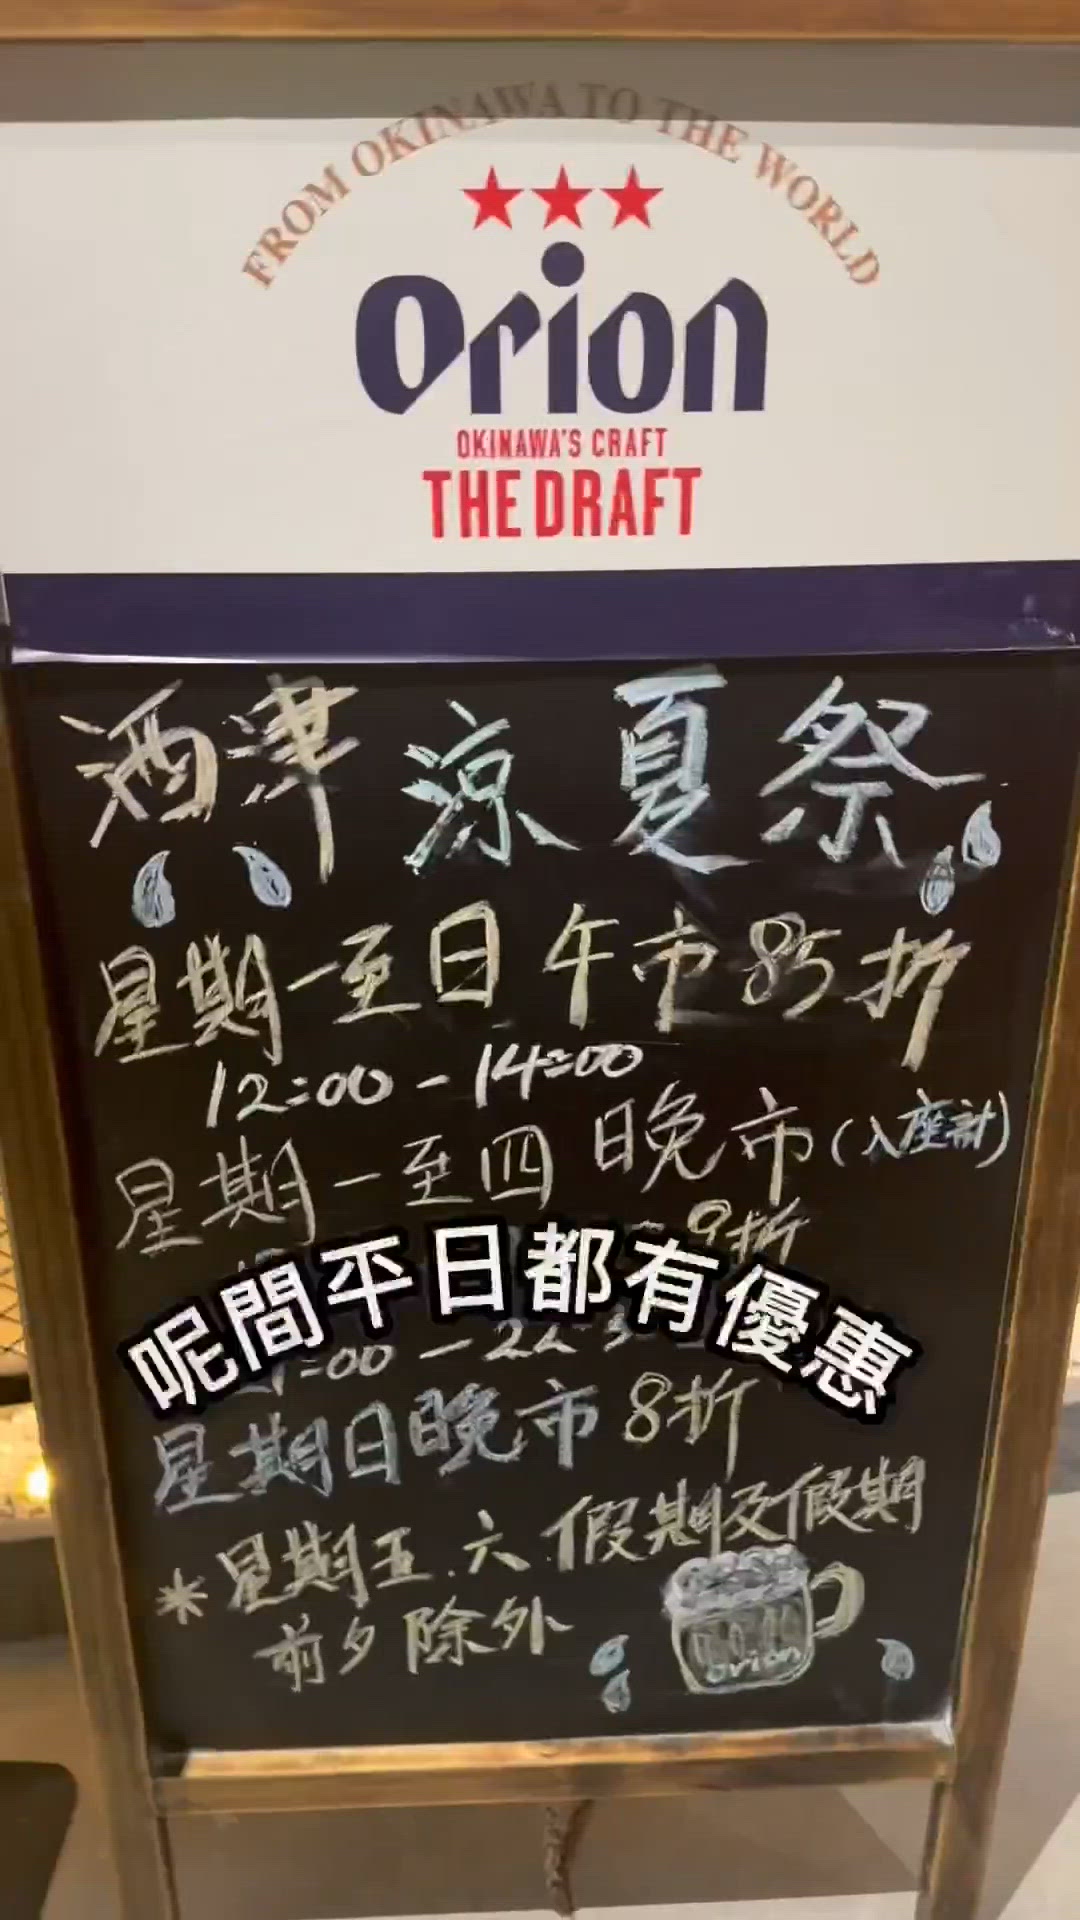 FROM OKINAWA TO THE WORLD
Orion
OKINAWA'S CRAFT
THE DRAFT
酒津涼夏祭
星期一至日午市85折
12:00-14:00
星期一至四晚市(入座計)
9折
呢間平日都有優惠
:00-22
星期日晚市8折
*星期五.六.假期及假期
前夕除外
orion